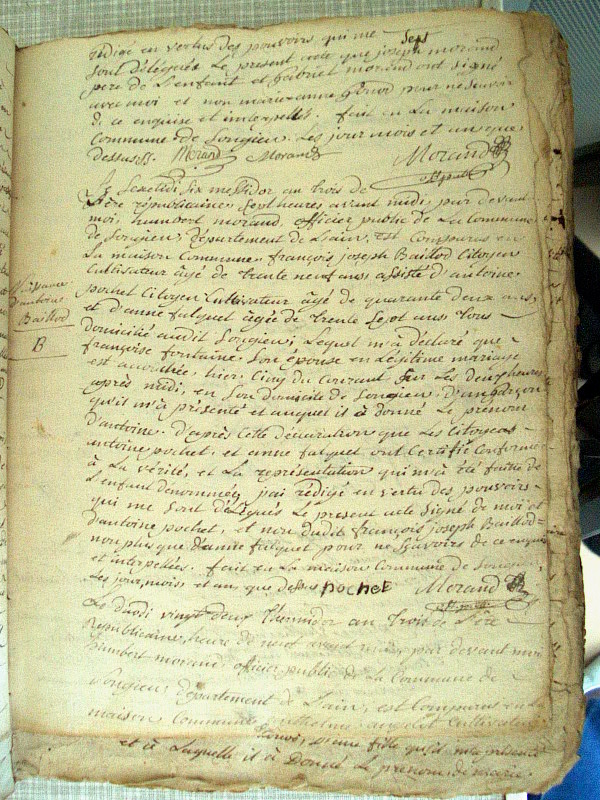 rédigé en vertus des pouvoirs qui me
sont délégués Le present acte que joseph morand
pere de L'enfant et gabriel morand ont signé
avec moi et non marie anne pour ne savoir
de ce enquise et interpellés. fait en La maison
Commune de Songieu Les jour mois et an que
dessus. Morand Morand Morand
off. public
Le Sextidi, Six messidor an trois de
L'ère républicaine, Sept heures avant midi, par devant
moi, humbert morand, officier public de La Commune
de Songieu, département de L'ain, est Comparus en
La maison Commune, françois joseph Baillod Citoyen
Cultivateur âgé de trente neuf ans assisté d'antoine
pochet Citoyen Cultivateur âgé de quarante deux ans,
et d'anne falquet âgée de trente Sept ans tous
domicilié audit Songieu; Lequel m'a déclaré que
françoise fontaine, Son épouse en Légitime mariage
est accouchée, hier, Cinq du Courant, Sur Les deux heures
après midi, en Son domicile de Songieu, d'un garçon
qu'il m'a présenté et auquel il a donné Le prenom
d'antoine. D'après Cette déclaration que Les Citoyens
antoine pochet, et anne falquet ont Certifié Conforme
à La vérité, et La représentation qui m'a été faite de
L'enfant denommé, j'ai rédigé en vertu des pouvoirs
qui me Sont délégués Le présent acte Signé de moi et
d'antoine pochet, et non dudit françois joseph Baillod
non plus que d'anne falquet pour ne Savoirs de ce enquis
et interpellés. fait en La maison Commune de Songieu
Les jour, mois et an que dessus pochet Morand
off. public
Naissance
d'antoine
Baillod
B
Le duodi vingt deux thermidor an trois de L'ère
Republicaine, heure de neuf avant midi, par devant moi
humbert morand officier public de La Commune de
Songieu, département de L'ain, est Comparus en La
maison Commune Cultivateur
une fille qu'il m'a présenté
et à Laquelle il a Donné Le prenom, de marie.